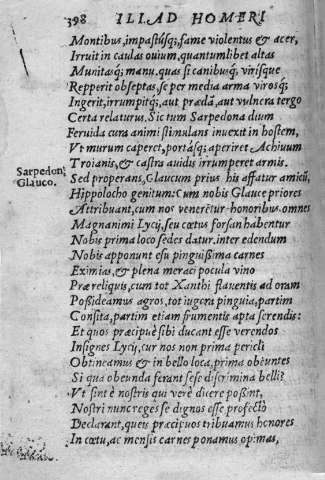 398 ILIAD HOMERI
Montibus, impastúsq; fame violentus & acer,
Irruit in caulas ouium, quantumlibet altas
Munitasq; manu, quas si canibusq; virísque
Repperit obseptas, se per media arma virosq;
Ingerit, irrumpitq; aut prædā, aut vulnera tergo
Certa relaturus. Sic tum Sarpedona dium
Feruida cura animi stimulans inuexit in hostem,
Vt murum caperet, portásq; aperiret Achiuum
Troianis, & castra auidis irrumperet armis.
Sarpedon Glauco.
Sed properans, Glaucum prius his affatur amicū,
Hippolocho genitum: Cum nobis Glauce priores
Attribuant, cum nos venerētur honoribus omnes
Magnanimi Lycij, seu cœtus forsan habentur
Nobis prima loco sedes datur, inter edendum
Nobis apponunt esu pinguißima carnes
Eximias, & plena meraci pocula vino
Præreliquis, cum tot Xanthi flauentis ad oram
Poßideamus agros, tot iugera pinguia, partim
Consita, partim etiam frumentis apta serendis:
Et quos præcipuè sibi ducant esse verendos
Insignes Lycij, cur nos non prima pericli
Obtineamus & in bello loca, prima obeuntes
Si qua obeunda ferant sese discrimina belli?
Vt sint è nostris qui verè dicere poßint,
Nostri nunc reges se dignos esse profectò
Declarant, queis præcipuos tribuamus honores
In cœtu, ac mensis carnes ponamus opimas,